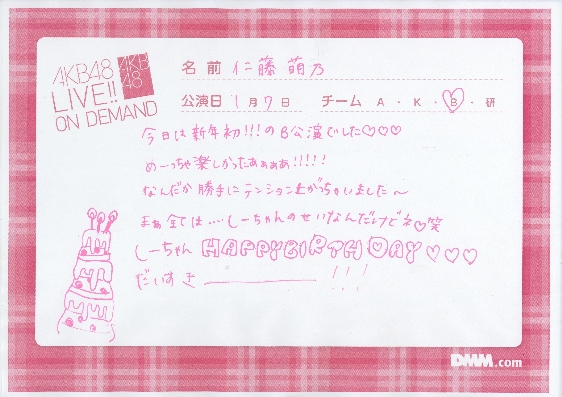 AKB48
LIVE!!
ON DEMAND
AKB
48
名前 仁藤萌乃
公演日 1月7日 チーム A・K・B・研
今日は新年初!!!のB公演でした♡♡♡
めーっちゃ楽しかったぁぁぁぁ!!!!!
なんだか勝手にテンション上がっちゃいました〜
まぁ全ては…しーちゃんのせいなんだけどネ♡笑
しーちゃん HAPPY BIRTHDAY ♡♡♡
だいすき――!!!
DMM.com